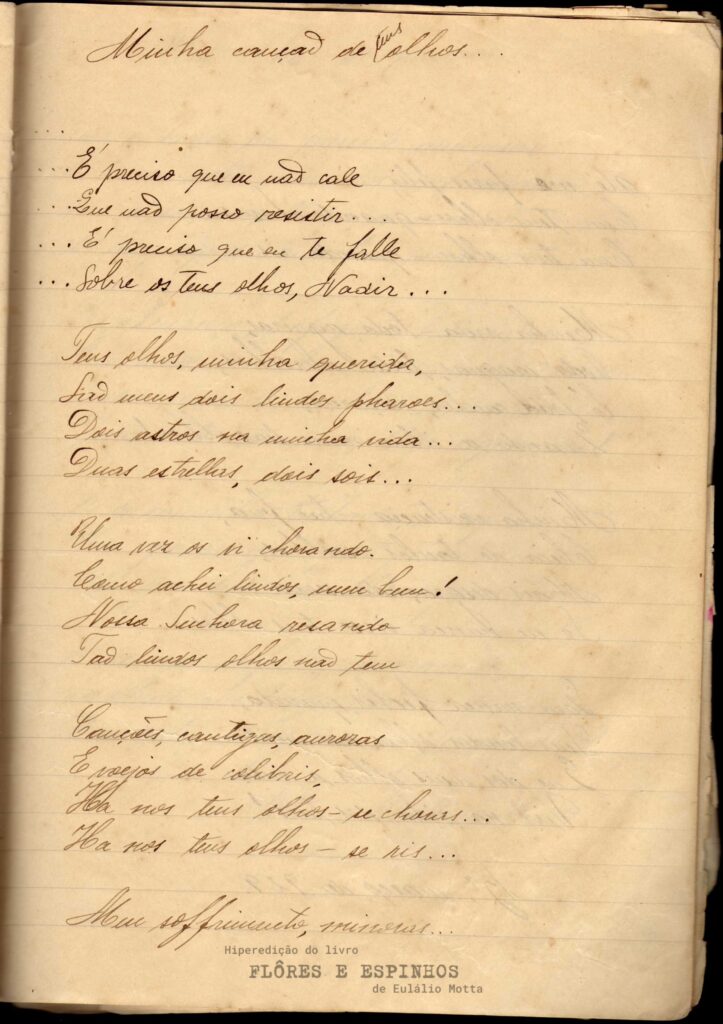 Minha canção de teus olhos...
...
...É preciso que eu não cale
...Que não posso resistir...
...É preciso que eu te falle
...Sobre os teus olhos, Nadir...
Teus olhos, minha querida,
São meus dois lindos pharoes...
Dois astros na minha vida...
Duas estrellas, dois sois...
Uma vez os vi chorando.
Como achei lindos, meu bem!
Nossa Senhora resando
Tão lindos olhos não tem
Canções, cantigas, auroras
E voejos de colibris,
Ha nos teus olhos - se choras...
Ha nos teus olhos - se ris...
Meu soffrimento, minoras...
Hiperedição do livro
FLÔRES E ESPINHOS
de Eulálio Motta